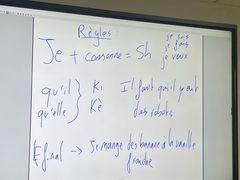 Règles:
Je + consonne = Sh
je suis
je fais
je veux
qu'il } Ki
qu'elle } Kè
Il faut qu'il y ait
des robots
E final → Je mange des bananes à la vanille